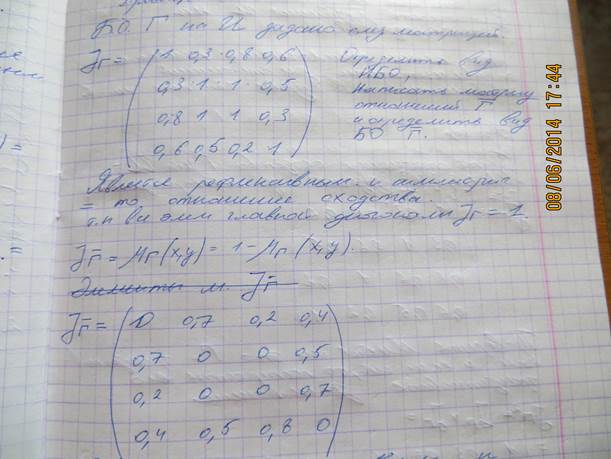 БО. Г на U задано его матрицей
Jг = ( 1 0,3 0,8 0,6
0,3 1 1 0,5
0,8 1 1 0,3
0,6 0,5 0,2 1 )
Определить вид
НБО,
написать матрицу
отношения Г̅
и определить вид
БО Г̅.
Является рефлексивным и симметрич
= то отношение сходства.
т.к все элем главной диагонали Jг = 1.
Jг̅ = μг̅(x,y) = 1 - μг(x,y).
Элементы м. Jг̅
Jг̅ = ( 0 0,7 0,2 0,4
0,7 0 0 0,5
0,2 0 0 0,7
0,4 0,5 0,8 0 )
08/06/2014 17:44